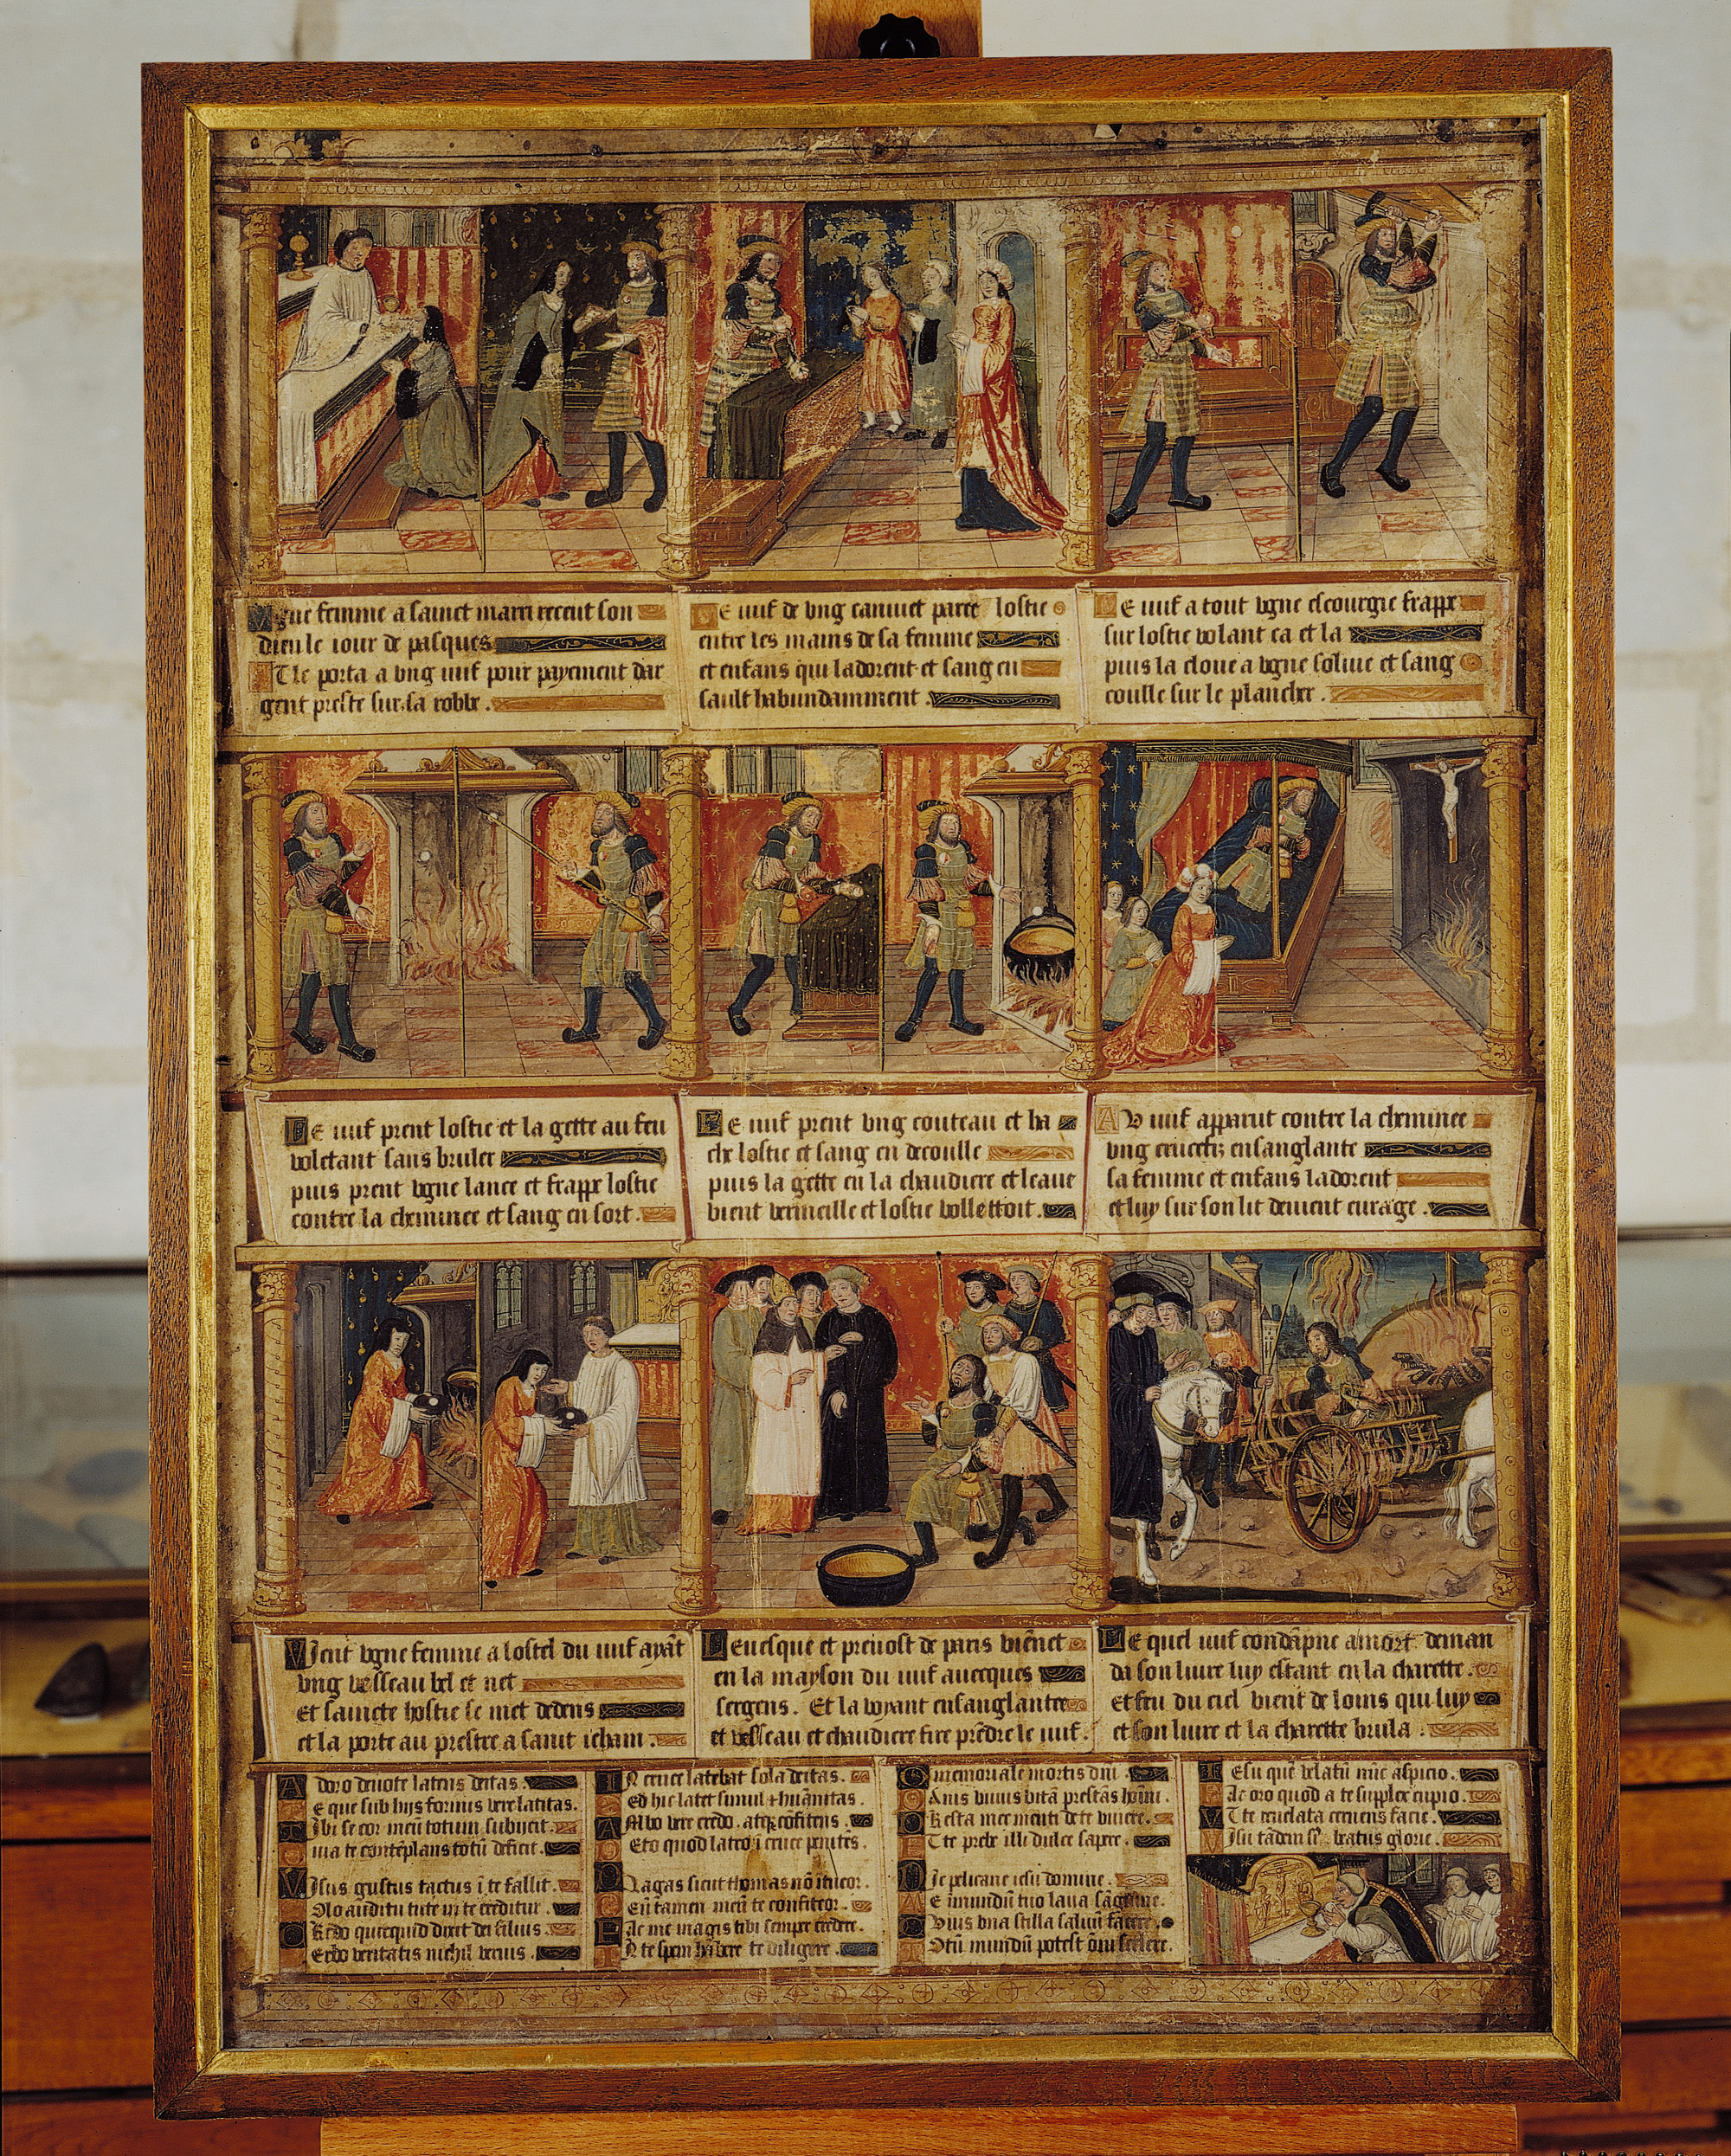 Vgne femme a sainct marri recent son
dieu le iour de pasques
Et le porta a ung iuif pour payement dar
gent preste sur sa robbe.
Le iuif de ung canivet paree lostie
entre les mains de sa femme
et enfans qui ladorent et sang en
sault habundamment.
Le iuif a tout vgne escourgie frappe
sur lostie volant ca et la
puis la cloue a vgne solive et sang
coulle sur le plancher.
Le iuif prent lostie et la gette au feu
voletant sans bruler
puis prent vgne lance et frappe lostie
contre la cheminee et sang en sort.
Le iuif prent ung couteau et ha
che lostie et sang en decoulle
puis la gette en la chaudiere et leaue
vient vermeille et lostie vollettoit.
Au iuif apparut contre la cheminee
ung crucefix ensanglante
sa femme et enfans ladorent
et luy sur son lit devient enrage.
Vient vgne femme a lostel du iuif ayāt
ung vesseau bel et net
Et saincte hostie se met dedens
et la porte au prestre a saint iehan.
Levesque et prevost de paris viēnēt
en la mayson du iuif avecques
sergens. Et la voyant ensanglantee
et vesseau et chaudiere fire prēdre le iuif.
Le quel iuif condāpne a mort deman
da son livre luy estant en la charette.
Et feu du ciel vient de loins qui luy
et son livre et la charette brula.
Adoro devote latens deitas.
Te que sub hijs formis vere latitas.
Tibi se cor meū totum subijcit.
Quia te contēplans totū deficit.
Visus gustus tactus ī te fallit.
Solo auditu tute creditur.
Credo quicquid dixit dei filius.
Verbo veritatis nichil verius.
In cruce latebat sola deitas.
Sed hic latet simul + huānitas.
Ambo vere credo. atqz cōfitens.
Peto quod latro ī cruce penitēs.
Plagas sicut thomas nō ītueor.
Deū tamen meū te confiteor.
Fac me magis tibi semper credere.
In te spem habere te diligere.
O memoriale mortis dnī.
Panis vivus vitā prestās hoīni.
Presta mee menti de te vivere.
Et te prebe illi dulce sapere.
Pie pelicane iesu domine.
Me īmundū tuo lava sāguine.
Cuius una stilla salvū facere.
Totū mundū potest omī scelere.
Iesu quē velatū nūc aspicio.
Fac oro quod a te supplex cupio.
Ut te revelata cernens facie.
Visu tādem beatus glorie.